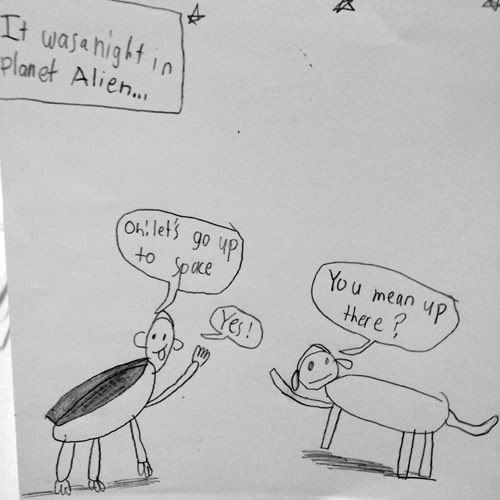 It was a night in
planet Alien...
Oh! let's go up
to space
Yes!
You mean up
there?